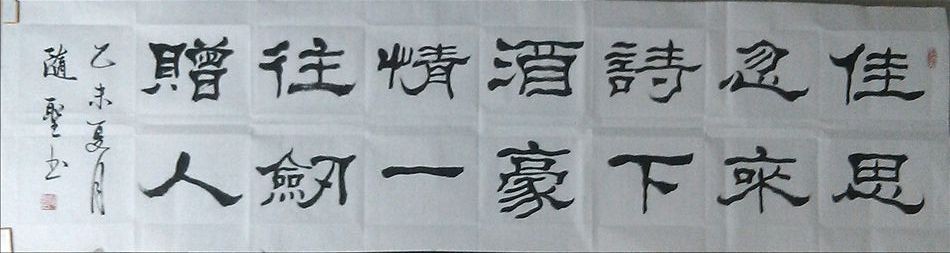 佳思
忽來
詩下
酒豪
情一
往劒
贈人
乙未夏月
隨聖书